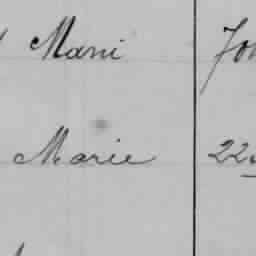 Mani
Marie 22